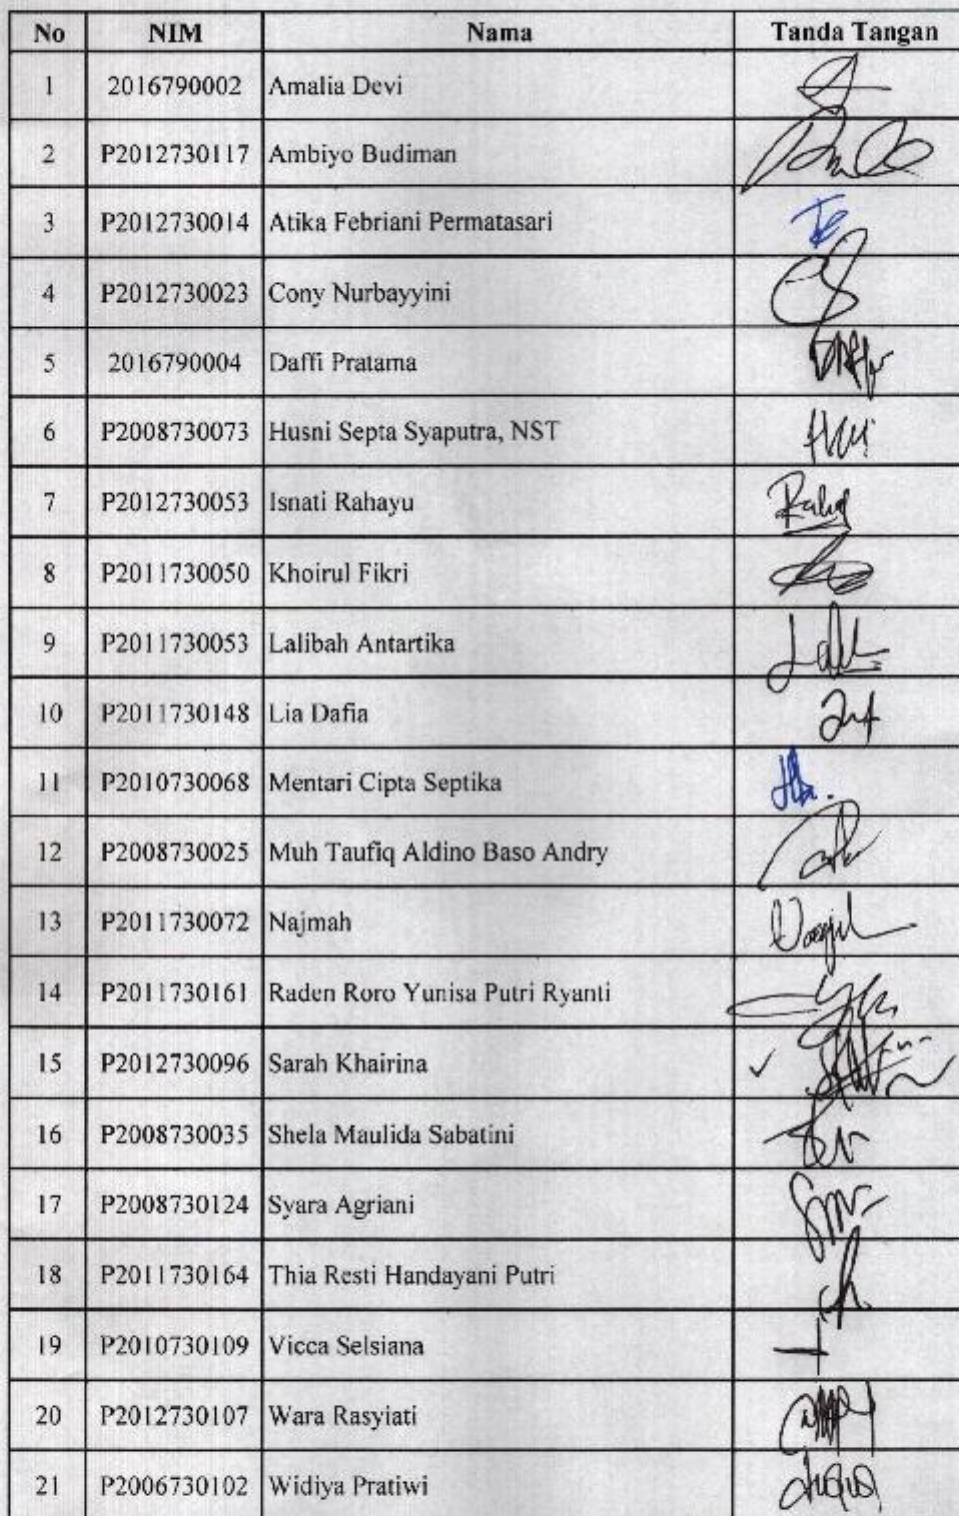 No NIM Nama Tanda Tangan
1 2016790002 Amalia Devi
2 P2012730117 Ambiyo Budiman
3 P2012730014 Atika Febriani Permatasari
4 P2012730023 Cony Nurbayyini
5 2016790004 Daffi Pratama
6 P2008730073 Husni Septa Syaputra, NST
7 P2012730053 Isnati Rahayu
8 P2011730050 Khoirul Fikri
9 P2011730053 Lalibah Antartika
10 P2011730148 Lia Dafia
11 P2010730068 Mentari Cipta Septika
12 P2008730025 Muh Taufiq Aldino Baso Andry
13 P2011730072 Najmah
14 P2011730161 Raden Roro Yunisa Putri Ryanti
15 P2012730096 Sarah Khairina
16 P2008730035 Shela Maulida Sabatini
17 P2008730124 Syara Agriani
18 P2011730164 Thia Resti Handayani Putri
19 P2010730109 Vicca Selsiana
20 P2012730107 Wara Rasyiati
21 P2006730102 Widiya Pratiwi